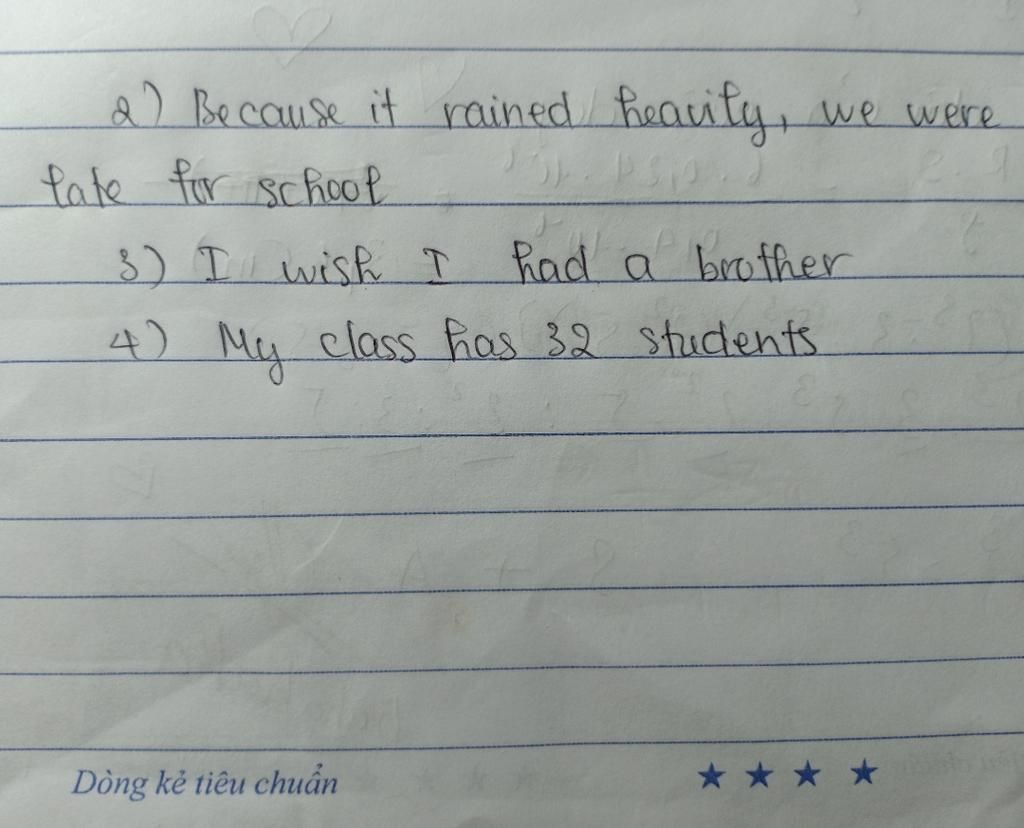 2) Because it rained heavily, we were
late for school
3) I wish I had a brother
4) My class has 32 students
Dòng kẻ tiêu chuẩn ★ ★ ★ ★